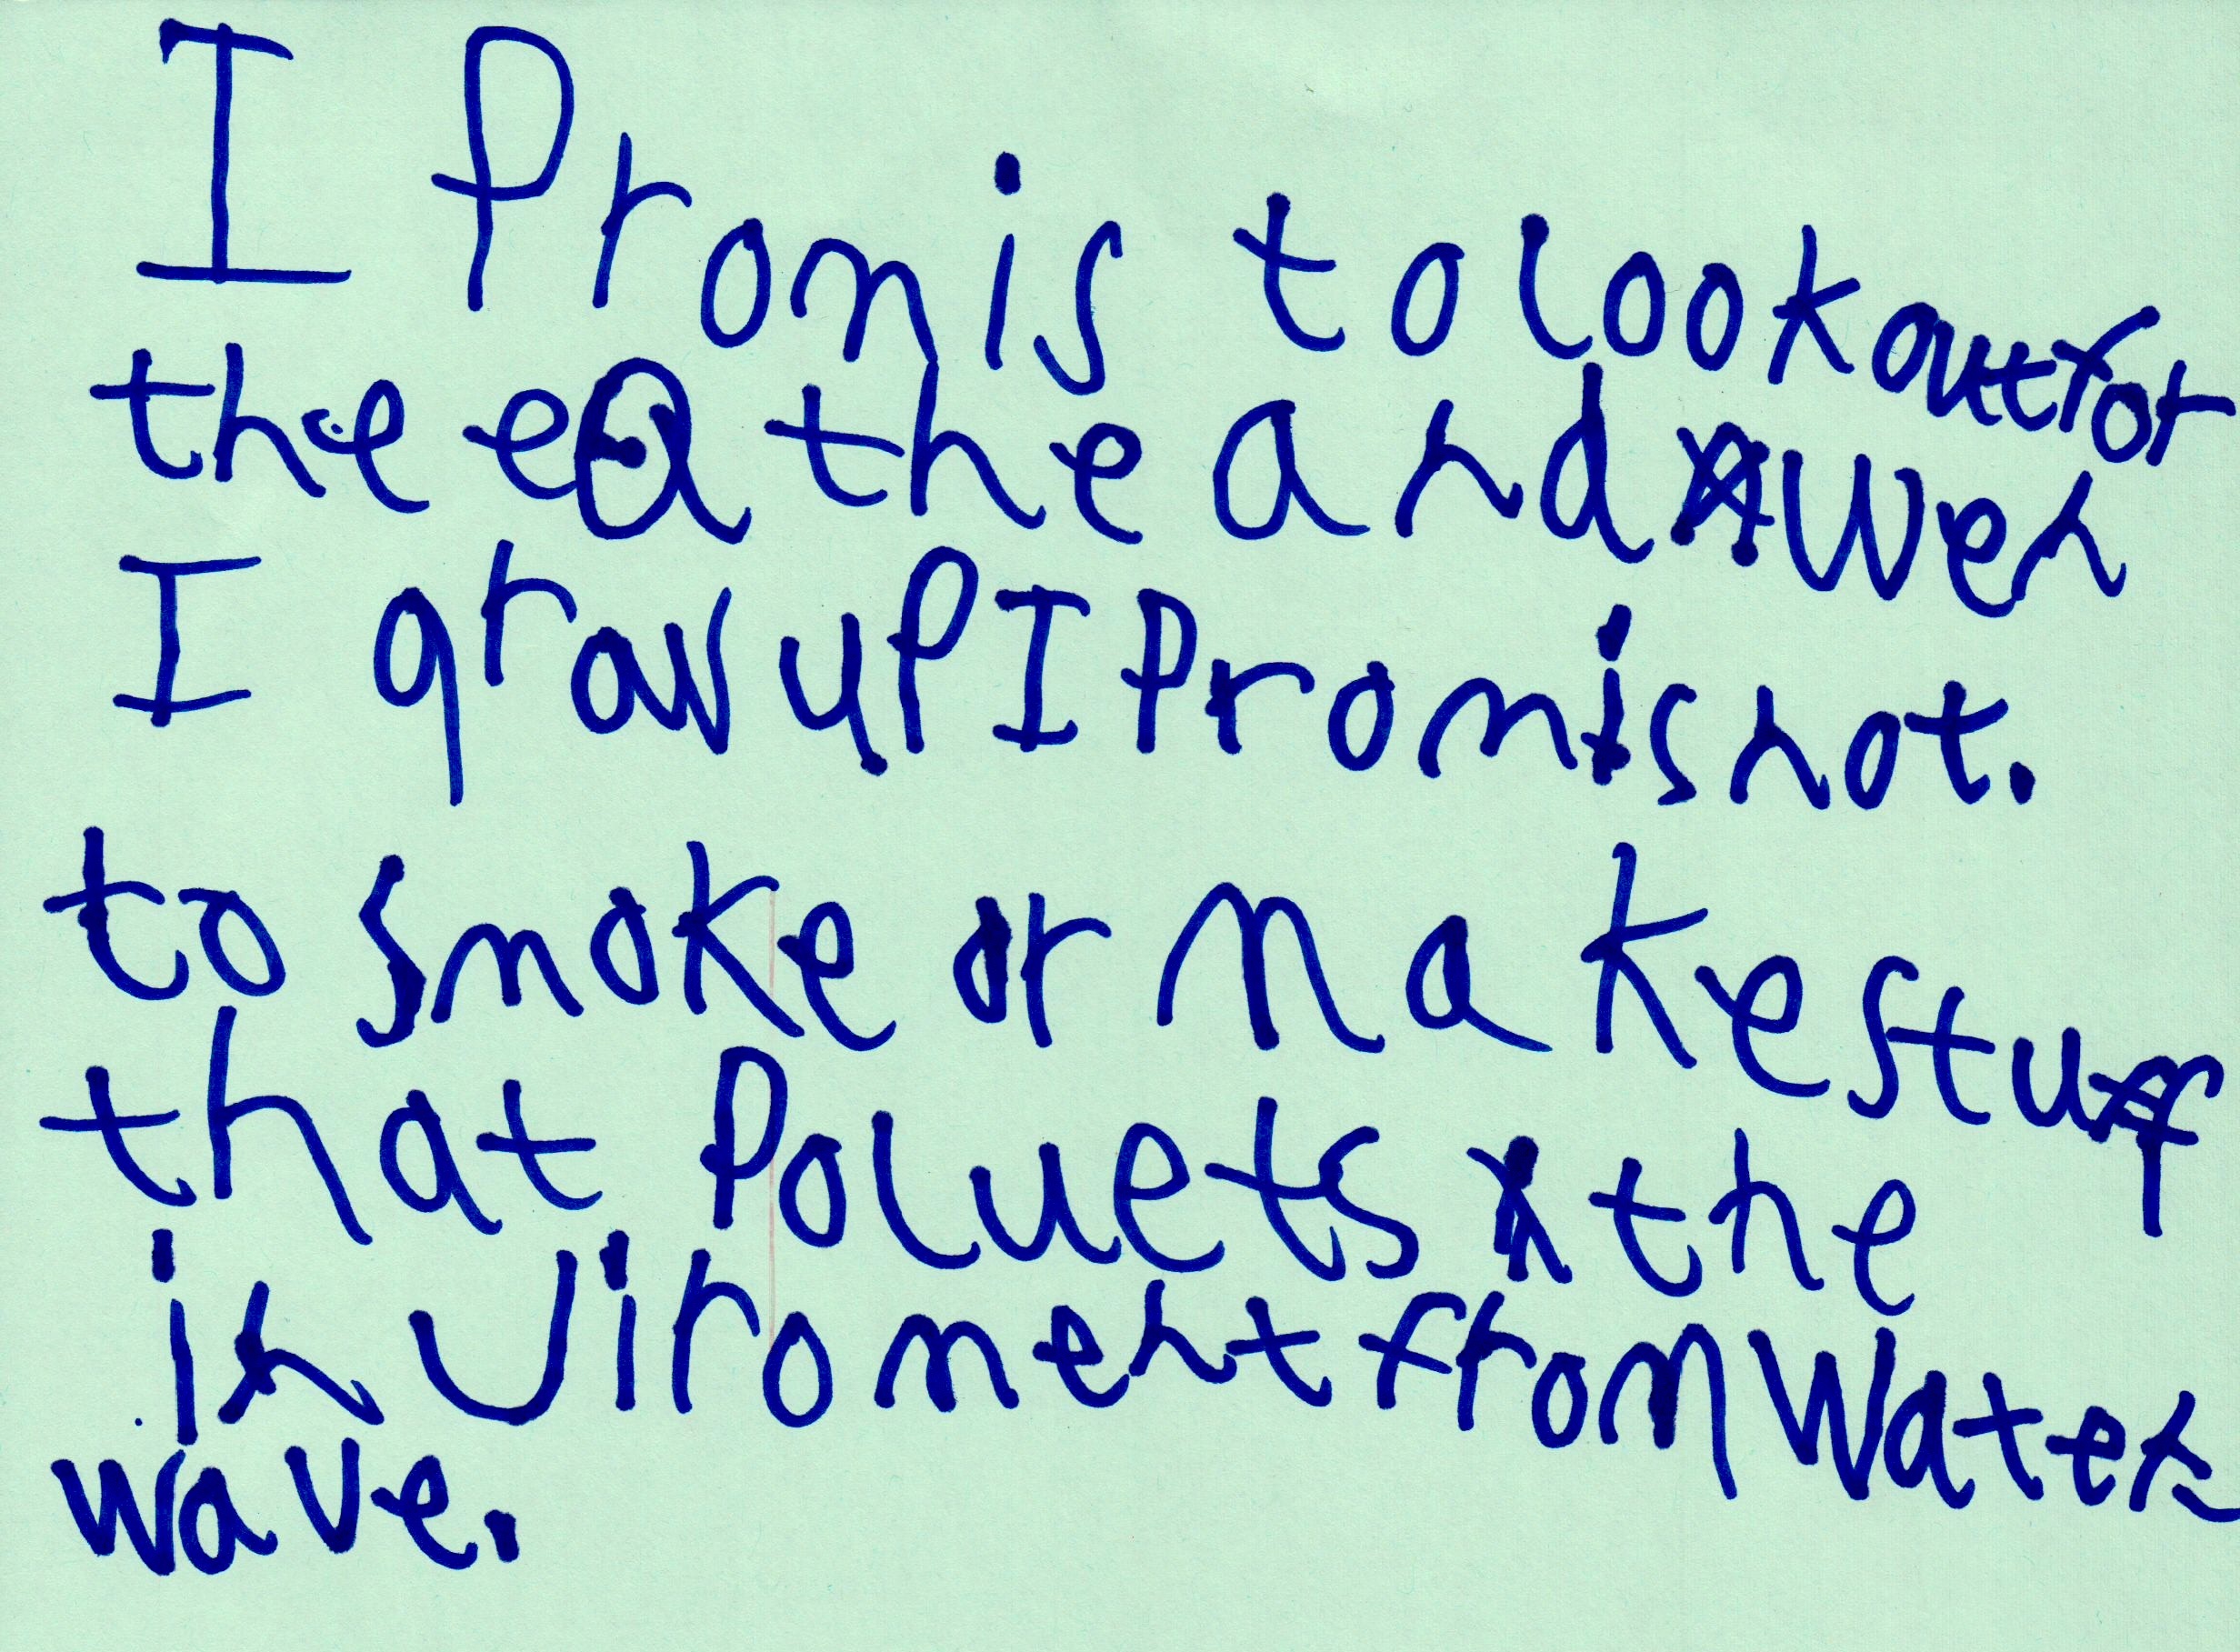 I Promis to look out for
the eathe and wen
I grow up I Promis not.
to smoke or make stuff
that Poluets the
inviroment from Water
wave.